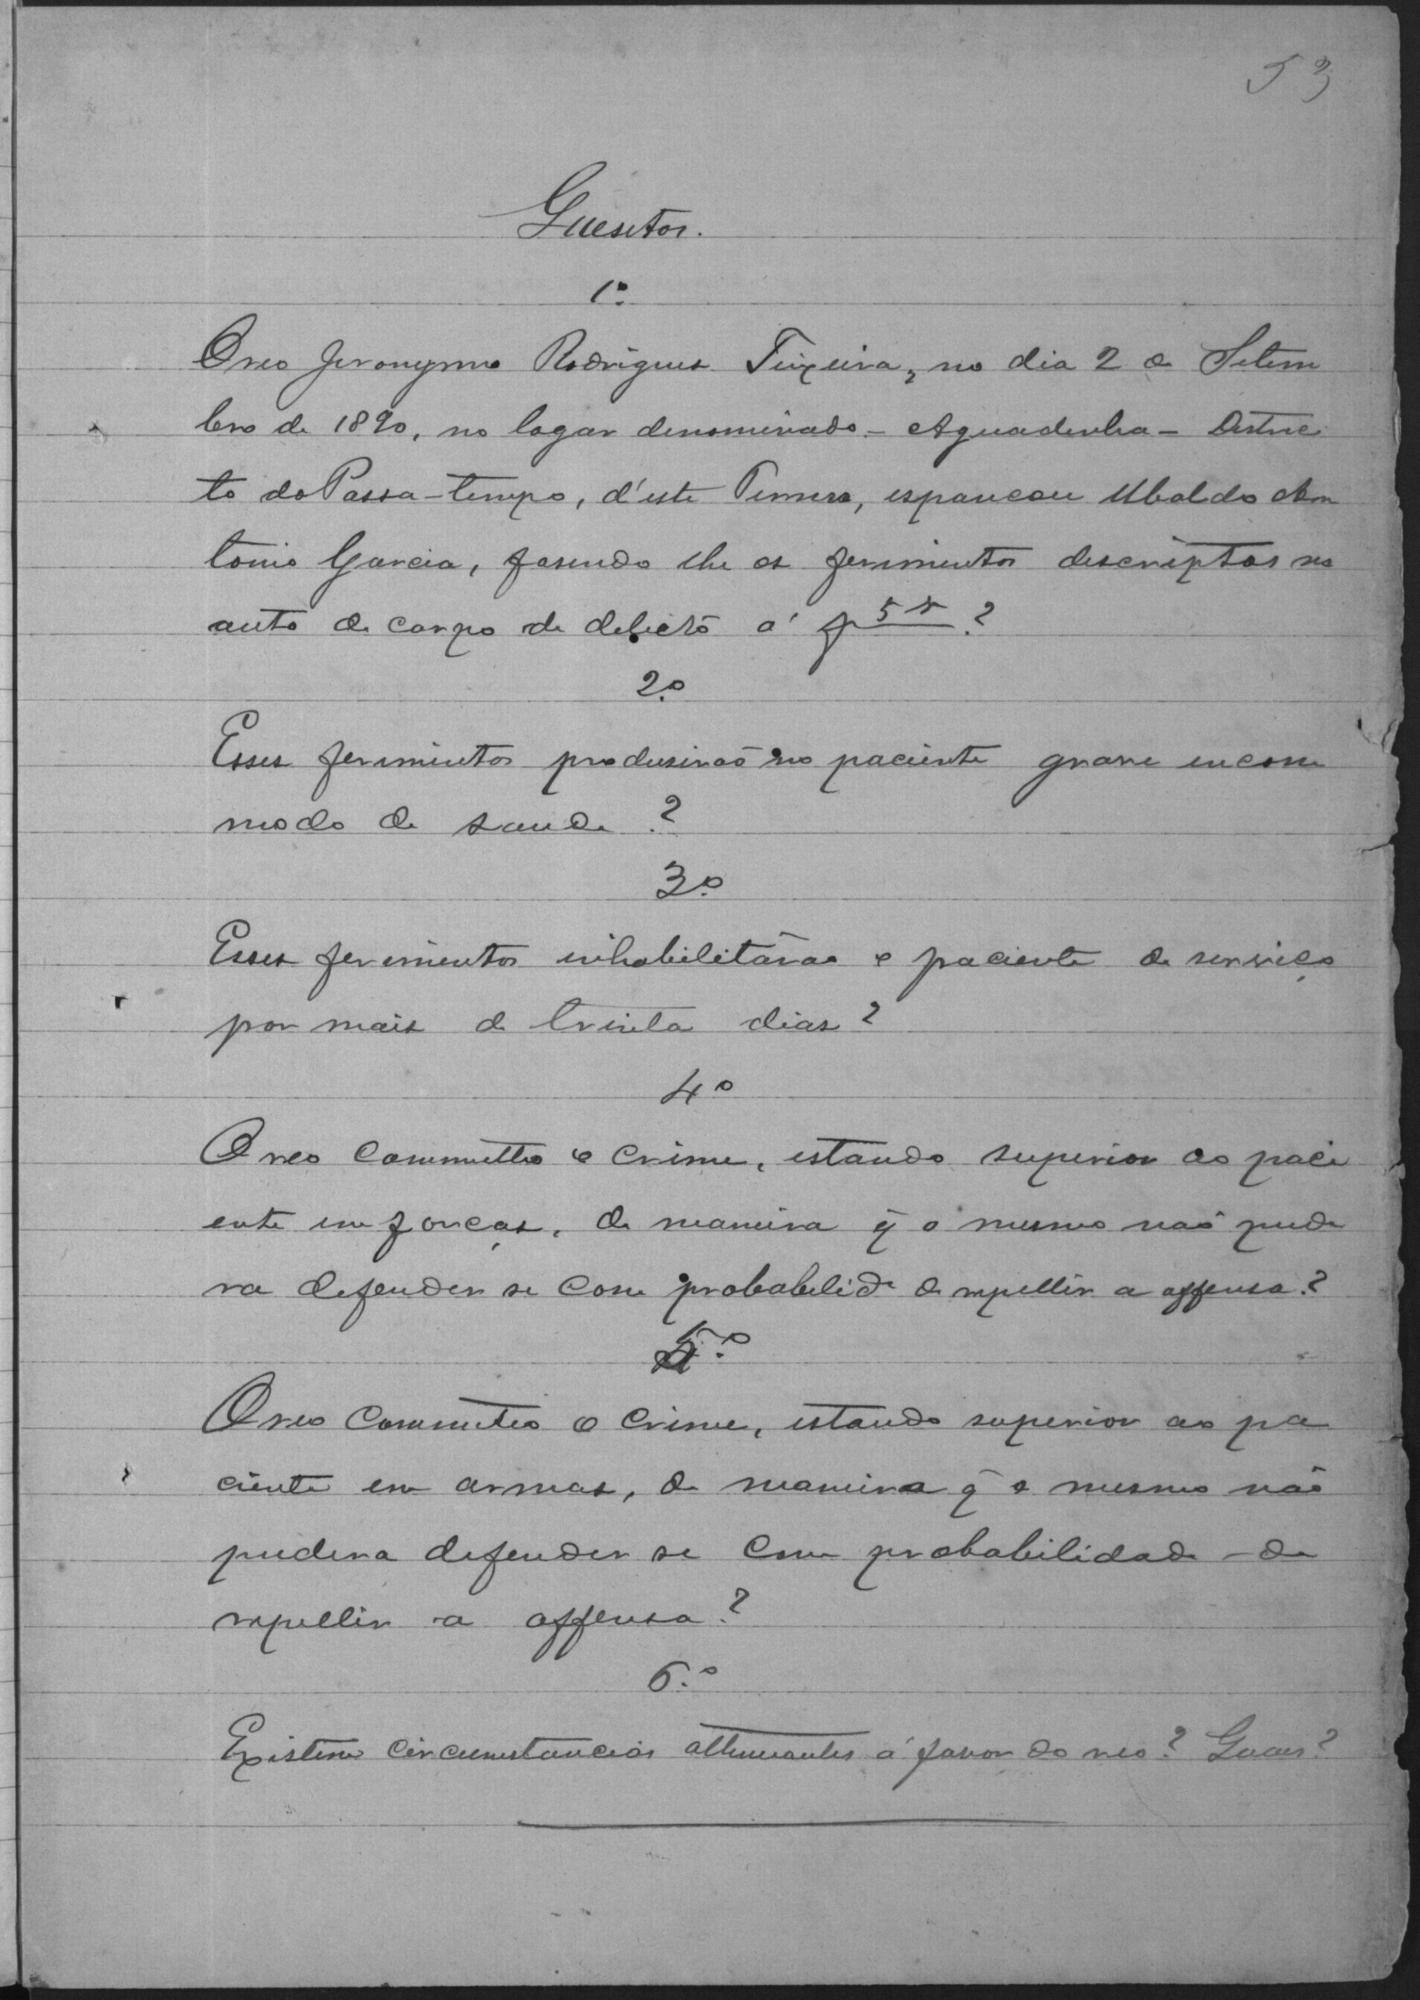 53
Quesitos.
1º
O reo Jeronymo Rodrigues Teixeira, no dia 2 de Setem
bro de 1890, no logar denominado - Aguadinha - Distric
to do Passa-tempo, d'este Termo, espancou Ubaldo An
tonio Garcia, fasendo lhe os ferimentos descriptos no
auto de corpo de delicto á f 5 v ?
2º
Esses ferimentos produsirão no paciente grave incom
modo de saude ?
3º
Esses ferimentos inhabilitárão o paciente de serviço
por mais de trinta dias ?
4º
O reo commetteo o crime, estando superior ao paci
ente em forças, de maneira q̃ o mesmo não pude
ra defender se com probabilide de repellir a offensa ?
5º
O reo commeteo o crime, estando superior ao pa
ciente em armas, de maneira q̃ o mesmo não
pudera defender se com probabilidade - de
repellir a offensa ?
6º
Existem circumstancias attenuantes á favor do reo ? Quaes ?